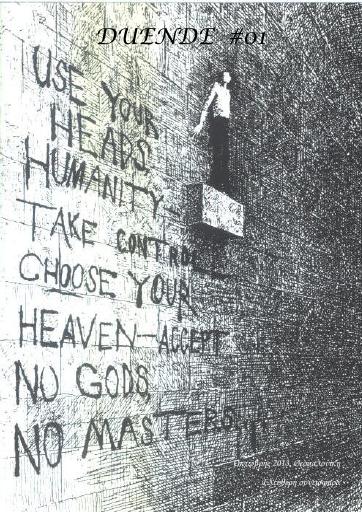 DUENDE #01
USE YOUR
HEADS,
HUMANITY—
TAKE CONTROL
CHOOSE YOUR
HEAVEN—ACCEPT
NO GODS,
NO MASTERS...
Οκτώβρης 2013, Θεσσαλονίκη
ελεύθερη συνεισφορά